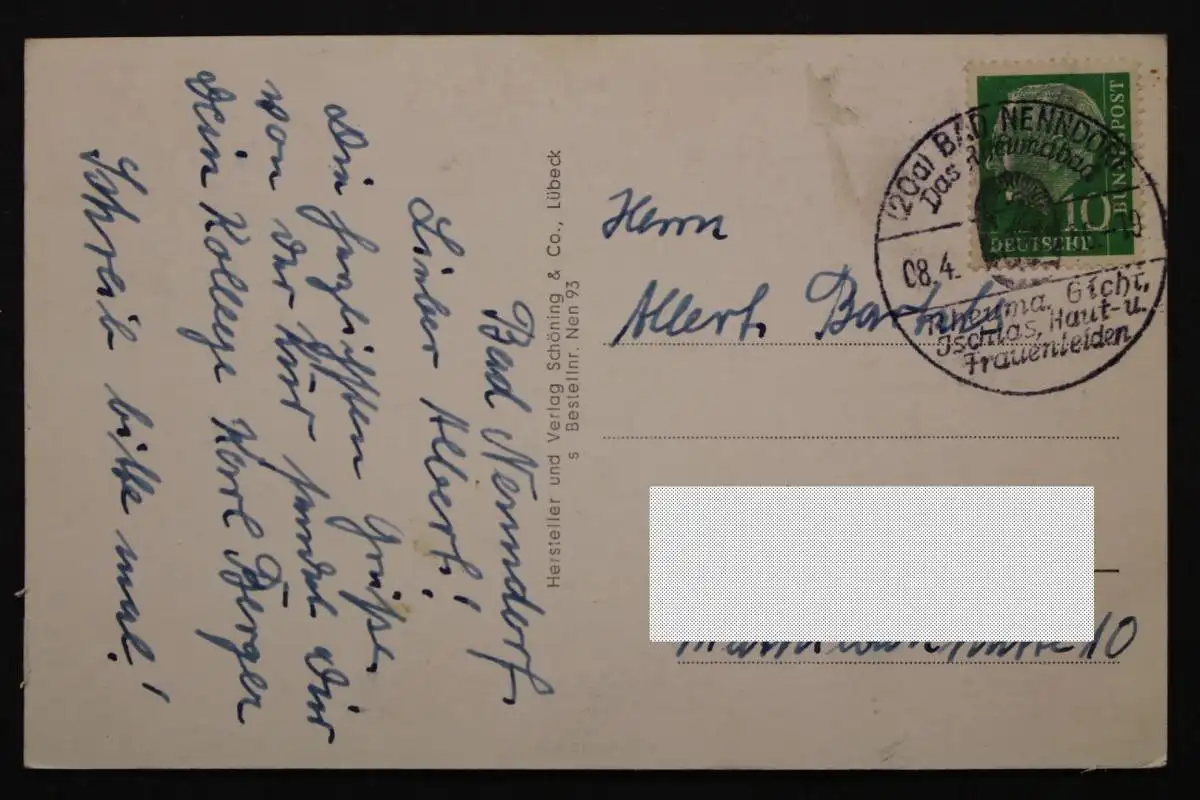 Bad Nenndorf,
Lieber Albert!
Die herzlichsten Grüße
von der Kur sendet Dir
Dein Kollege Karl Berger
Schreib bitte mal!
Hersteller und Verlag Schöning & Co., Lübeck
s Bestellnr. Nen 93
Herrn
Albert
10
DEUTSCHE
BUNDESPOST
(20a) BAD NENNDORF
Das Rheumabad
08.4.
Rheuma, Gicht,
Ischias, Haut- u.
Frauenleiden
10